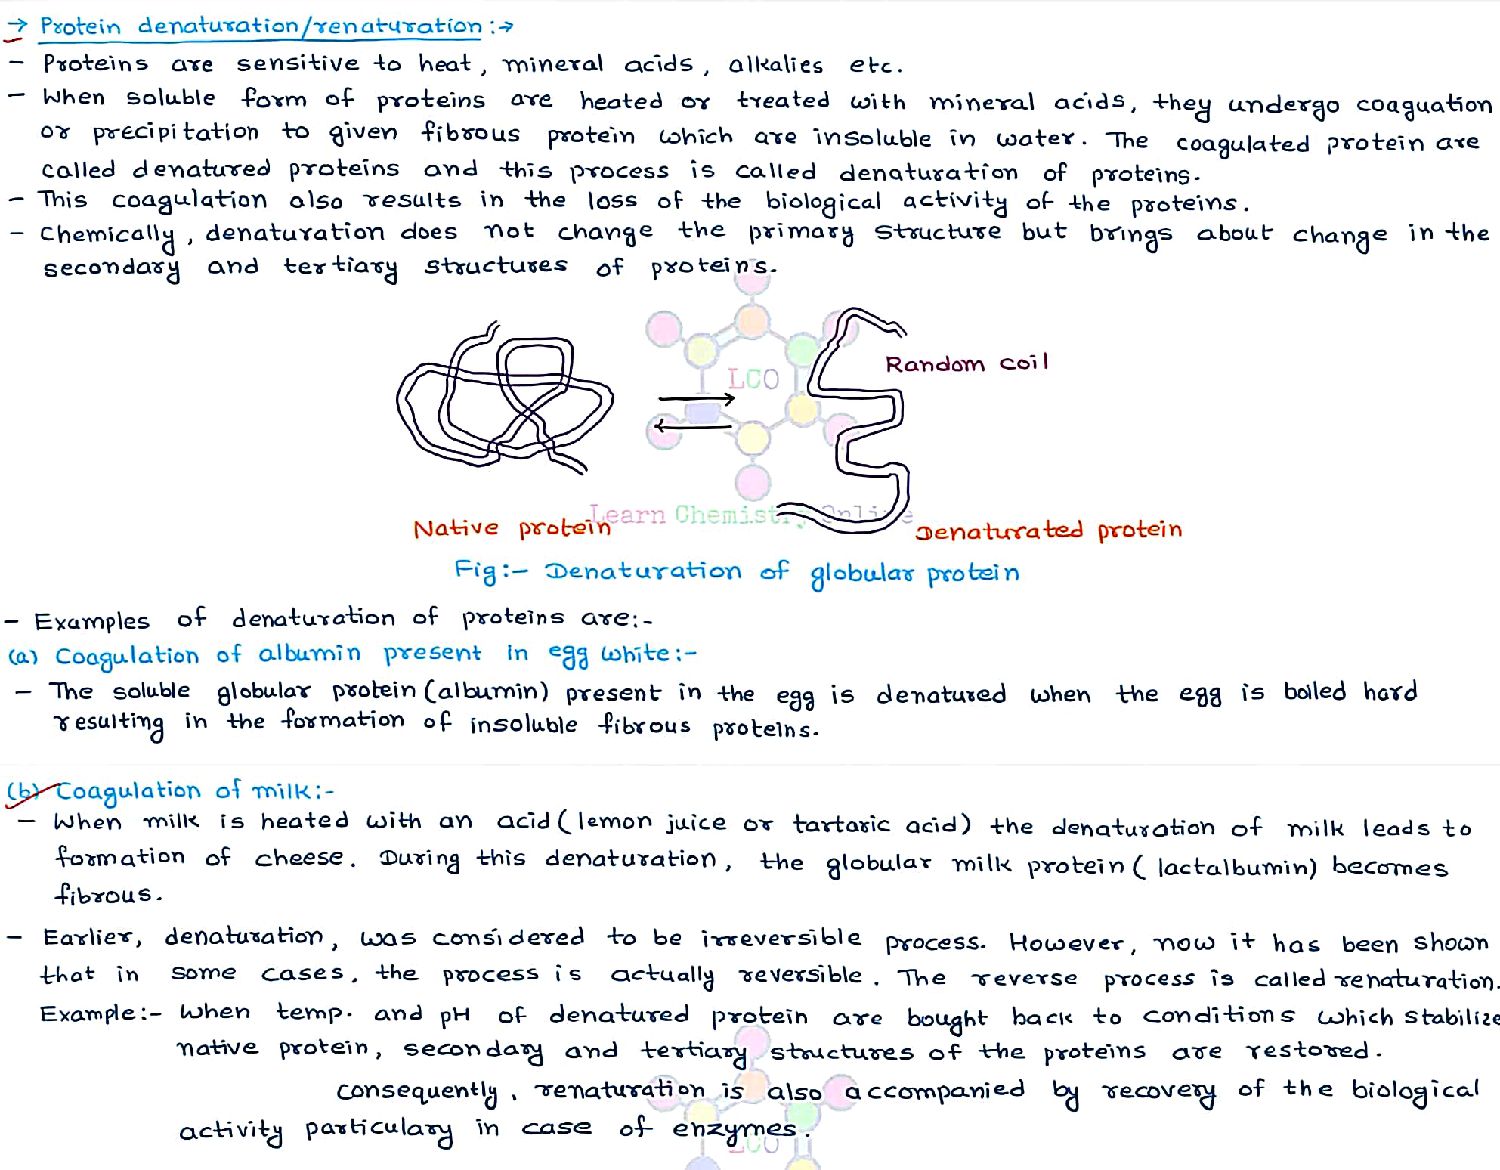 → Protein denaturation/renaturation:→
- Proteins are sensitive to heat, mineral acids, alkalies etc.
- When soluble form of proteins are heated or treated with mineral acids, they undergo coaguation
or precipitation to given fibrous protein which are insoluble in water. The coagulated protein are
called denatured proteins and this process is called denaturation of proteins.
- This coagulation also results in the loss of the biological activity of the proteins.
- Chemically, denaturation does not change the primary structure but brings about change in the
secondary and tertiary structures of proteins.
Random coil
LCO
Learn Chemistry Online
Native protein
Denaturated protein
Fig:- Denaturation of globular protein
- Examples of denaturation of proteins are:-
(a) Coagulation of albumin present in egg white:-
- The soluble globular protein (albumin) present in the egg is denatured when the egg is boiled hard
resulting in the formation of insoluble fibrous proteins.
(b) Coagulation of milk:-
- When milk is heated with an acid (lemon juice or tartaric acid) the denaturation of milk leads to
formation of cheese. During this denaturation, the globular milk protein (lactalbumin) becomes
fibrous.
- Earlier, denaturation, was considered to be irreversible process. However, now it has been shown
that in some cases, the process is actually reversible. The reverse process is called renaturation.
Example:- When temp. and pH of denatured protein are bought back to conditions which stabilize
native protein, secondary and tertiary structures of the proteins are restored.
consequently, renaturation is also accompanied by recovery of the biological
activity particulary in case of enzymes.
LCO